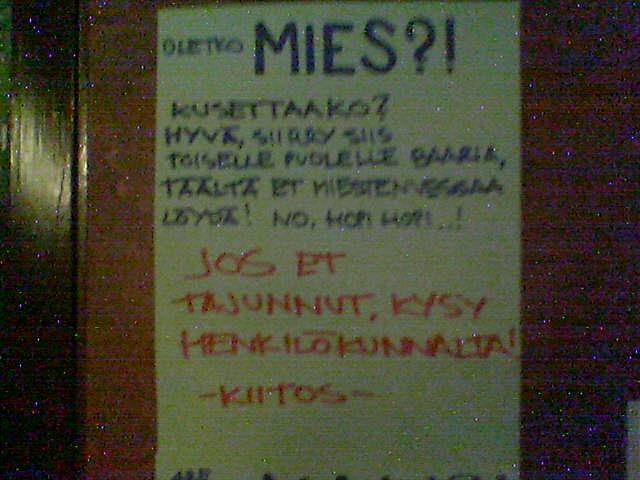 OLETKO MIES?!
KUSETTAAKO?
HYVÄ, SIIRRY SIIS
TOISELLE PUOLELLE BAARIA,
TÄÄLTÄ ET MIESTENVESSAA
LÖYDÄ! NO, HOPI HOPI...!
JOS ET
TAJUNNUT, KYSY
HENKILÖKUNNALTA!
-KIITOS-